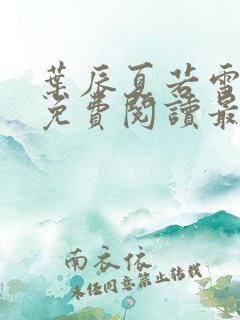 葉辰夏若雪
免費閱讀最
南衣依
未经同意禁止转载